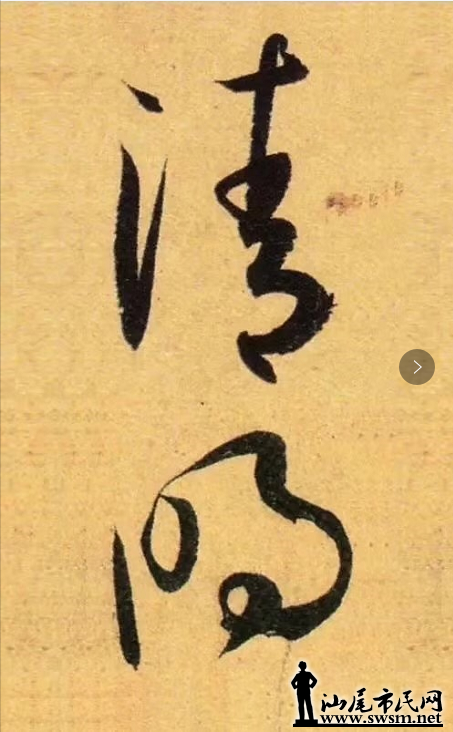 清
明
汕尾市民网
www.swsm.net